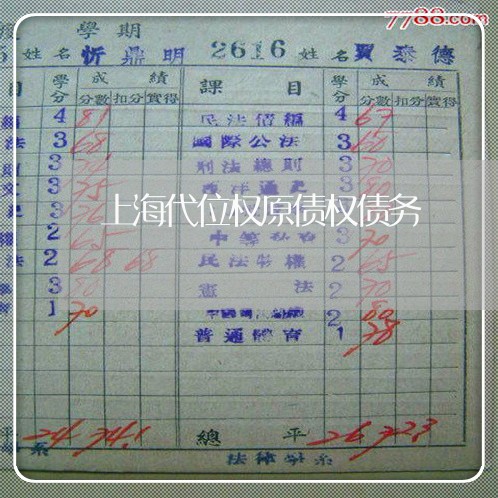 7788.com
學期
姓名 忻鼎明 2616 姓名 賈泰德
目 學分 成績 課目 學分 成績
分數 扣分 實得 分數 扣分 實得
4 81 民法債編 4 67
法 3 68 國際公法 3 60
3 刑法總則 3 70
文 3 75 西洋通史 3 80
3 76 3
上海代位权原债权债务
權 2 65 3 70
法 2 68 68 民法物權 2 65
3 80 憲法 2 70
1 70 2 80
普通體育 1 78
平 24 74.1 總平 26 72.3
系 法律學系